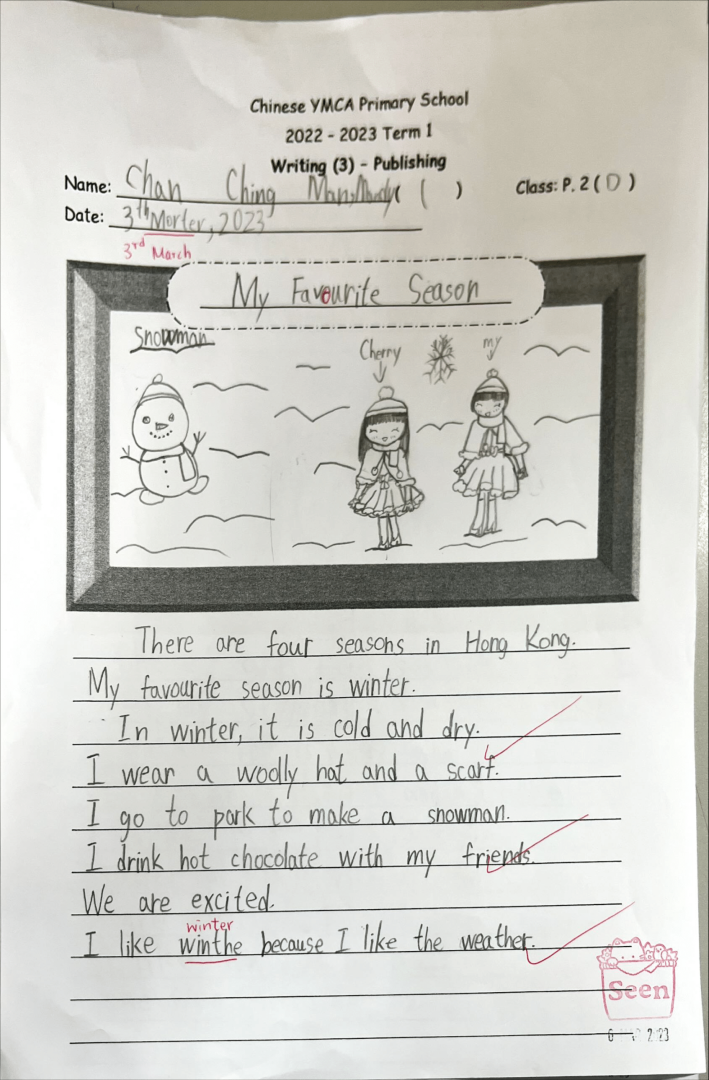 Chinese YMCA Primary School
2022 - 2023 Term 1
Writing (3) - Publishing
Name: Chan Ching Man, ( ) Class: P. 2 ( D )
Date: 3th Morter, 2023
3rd March
My Favourite Season
Snowman
Cherry
my
There are four seasons in Hong Kong.
My favourite season is winter.
In winter, it is cold and dry.
I wear a woolly hat and a scarf.
I go to park to make a snowman.
I drink hot chocolate with my friends.
We are excited.
winter
I like winthe because I like the weather.
Seen